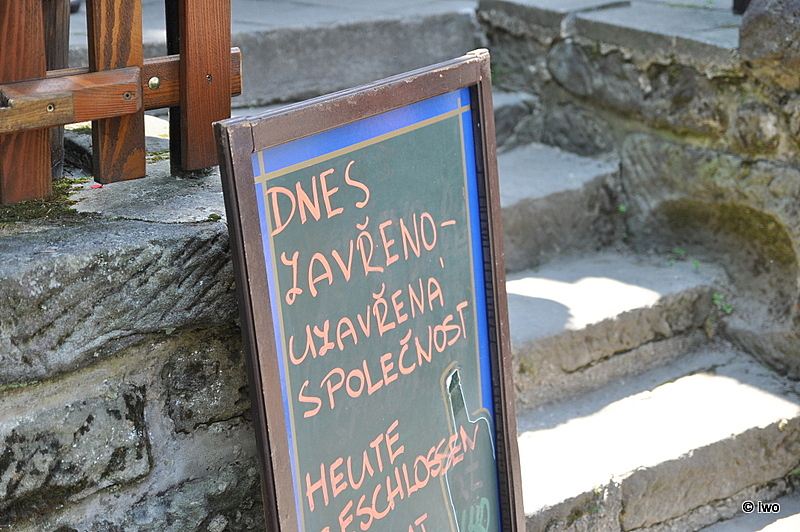 DNES
ZAVŘENO-
UZAVŘENÁ
SPOLEČNOST
HEUTE
GESCHLOSSEN
© Iwo